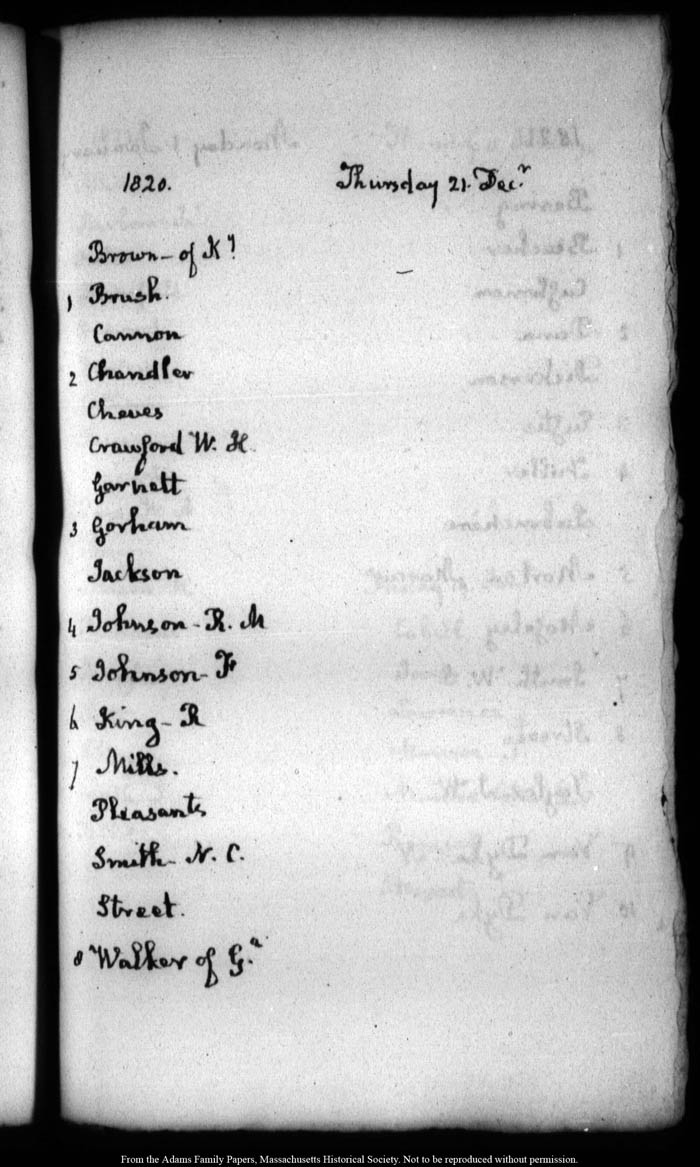 1820. Thursday 21. Decr
Brown - of Ky
1 Brush.
Cannon
2 Chandler
Cheves
Crawford W. H.
Garnett
3 Gorham
Jackson
4 Johnson - R. M
5 Johnson - F
6 King - R
7 Mills.
Pleasants
Smith - N. C.
Street.
8 Walker of G.a
From the Adams Family Papers, Massachusetts Historical Society. Not to be reproduced without permission.